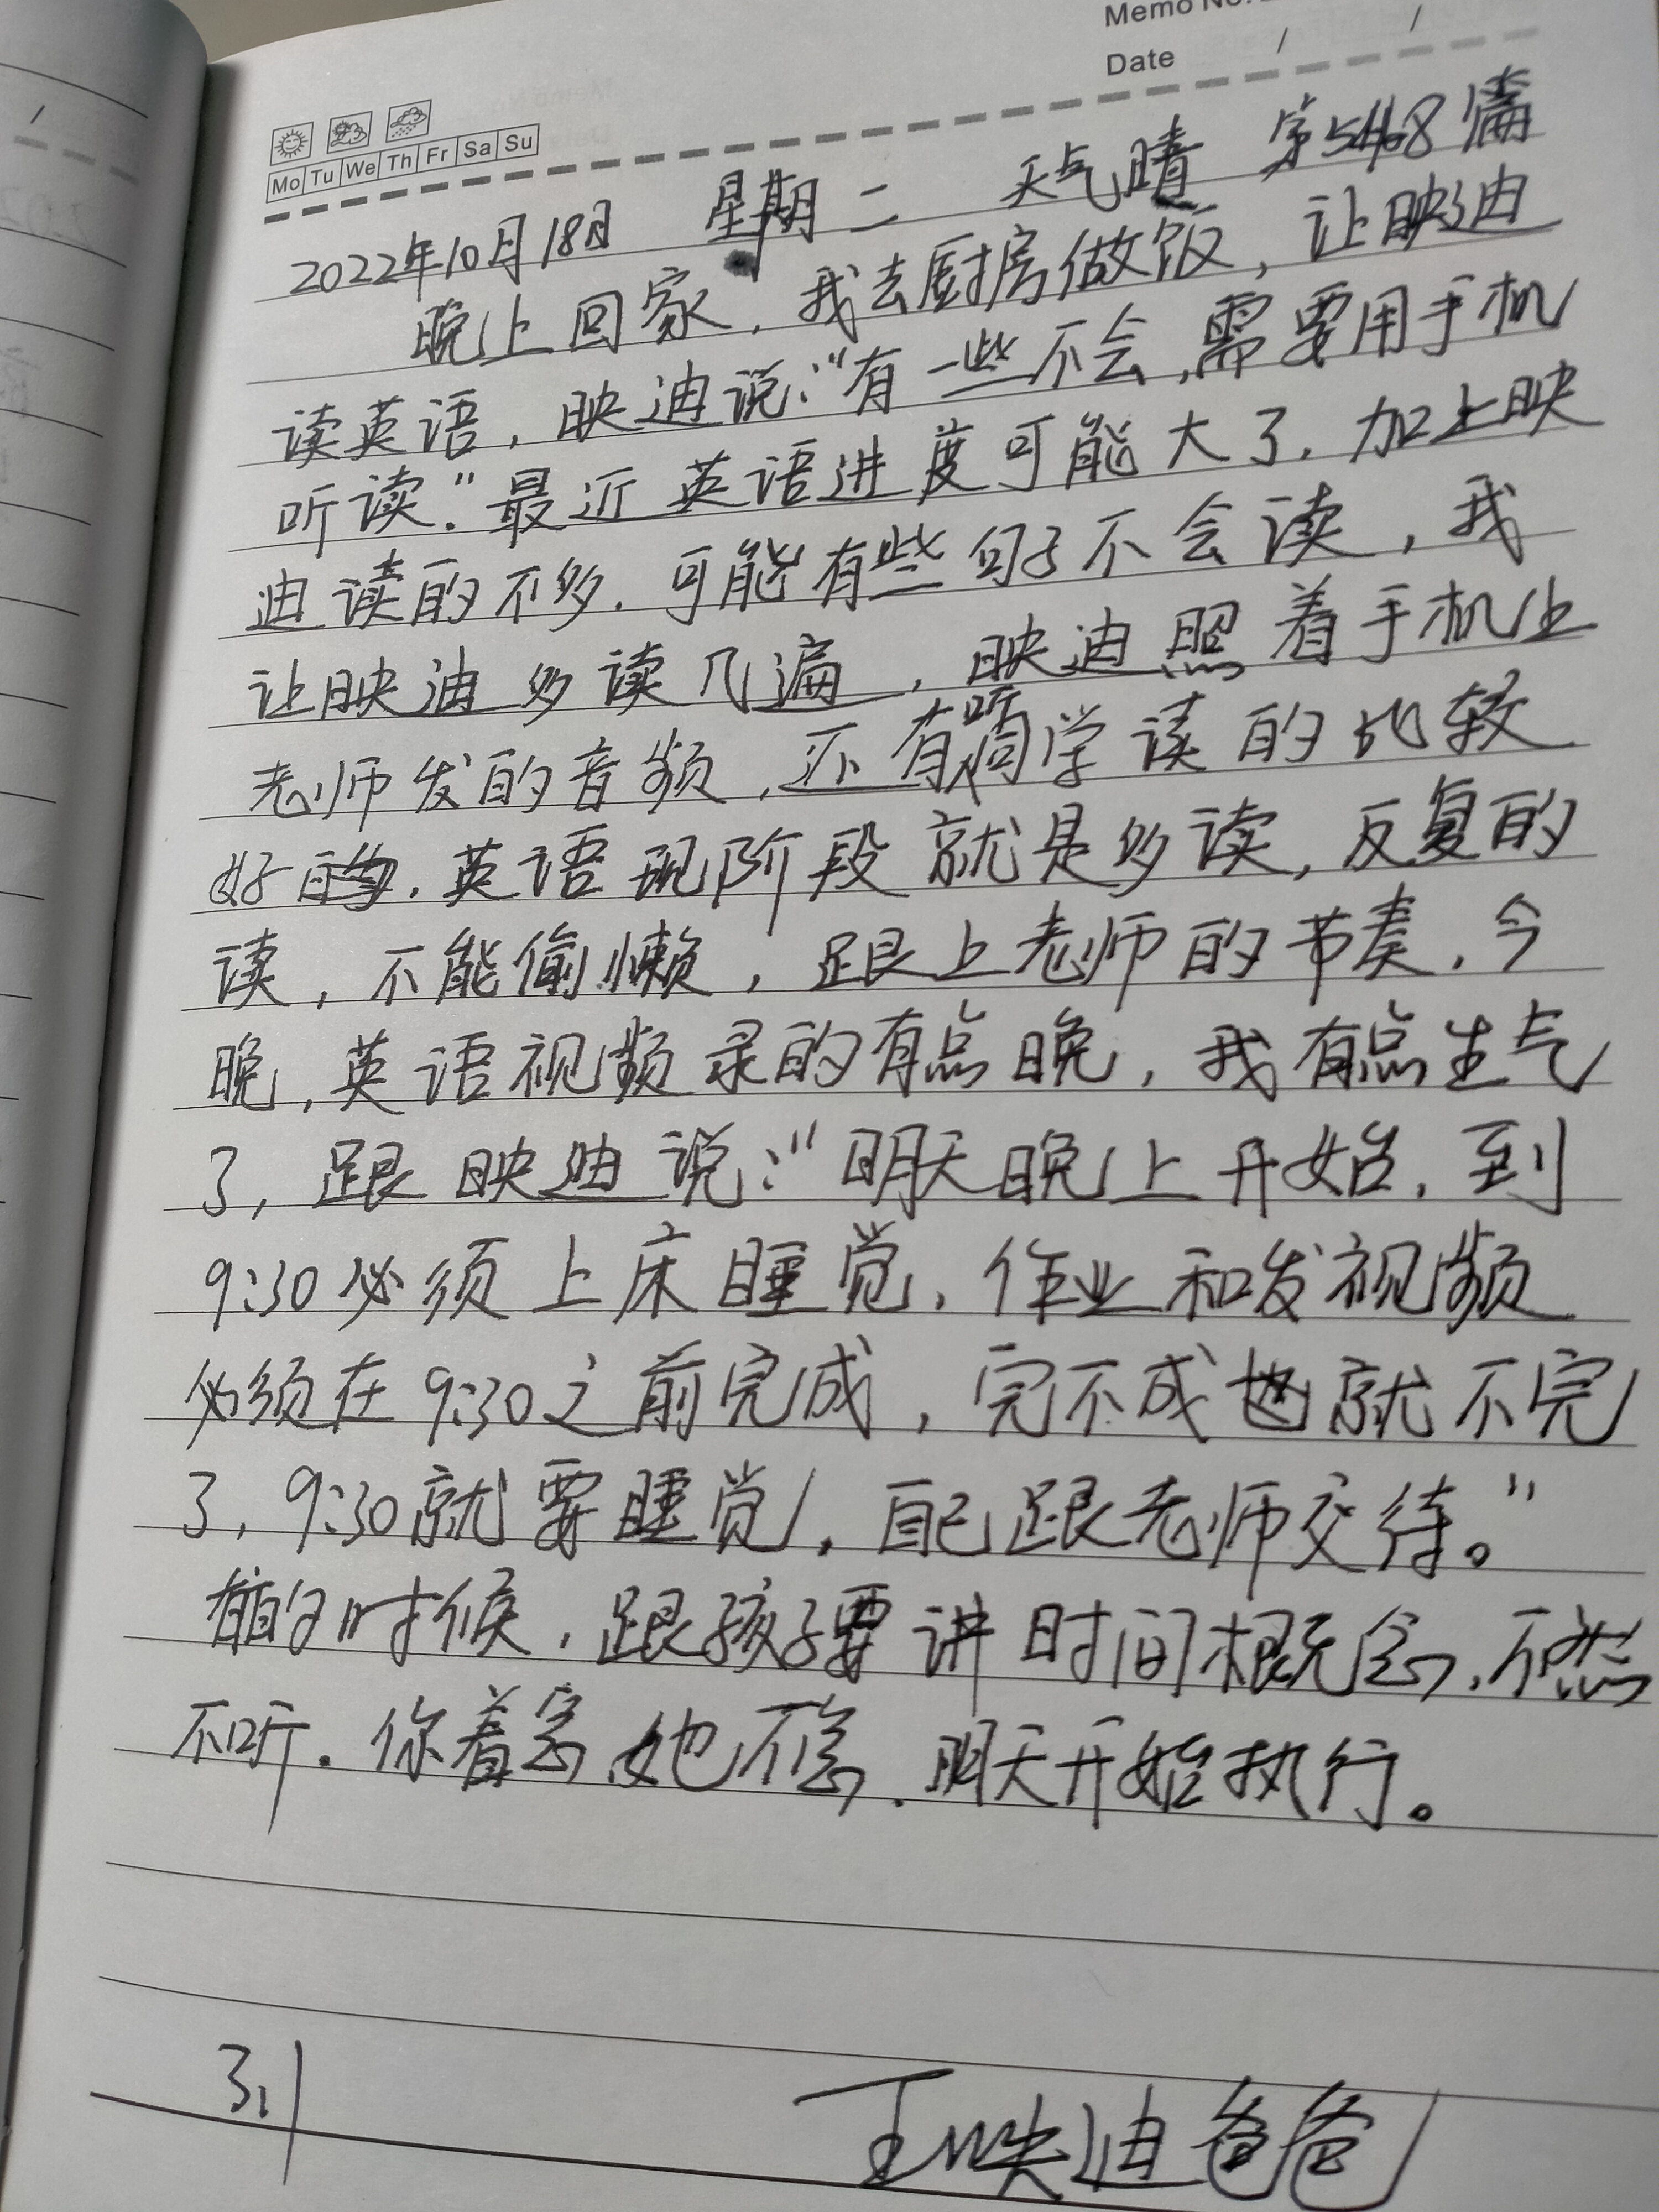 Memo No.
Date / /
Mo Tu We Th Fr Sa Su
2022年10月18日 星期二 天气晴 第5468篇
晚上回家,我去厨房做饭,让映迪
读英语,映迪说:“有一些不会,需要用手机
听读.”最近英语进度可能大了.加上映
迪读的不多.可能有些句子不会读,我
让映迪多读几遍,映迪照着手机上
老师发的音频,还有听同学读的比较
好的.英语现阶段就是多读,反复的
读,不能偷懒,跟上老师的节奏.今
晚,英语视频录的有点晚,我有点生气
了,跟映迪说:“明天晚上开始,到
9:30必须上床睡觉,作业和发视频
必须在9:30之前完成,完不成也就不完
了,9:30就要睡觉,自己跟老师交待。”
有的时候,跟孩子要讲时间概念,不然
不听.你着急她不急.明天开始执行。
31
王映迪爸爸